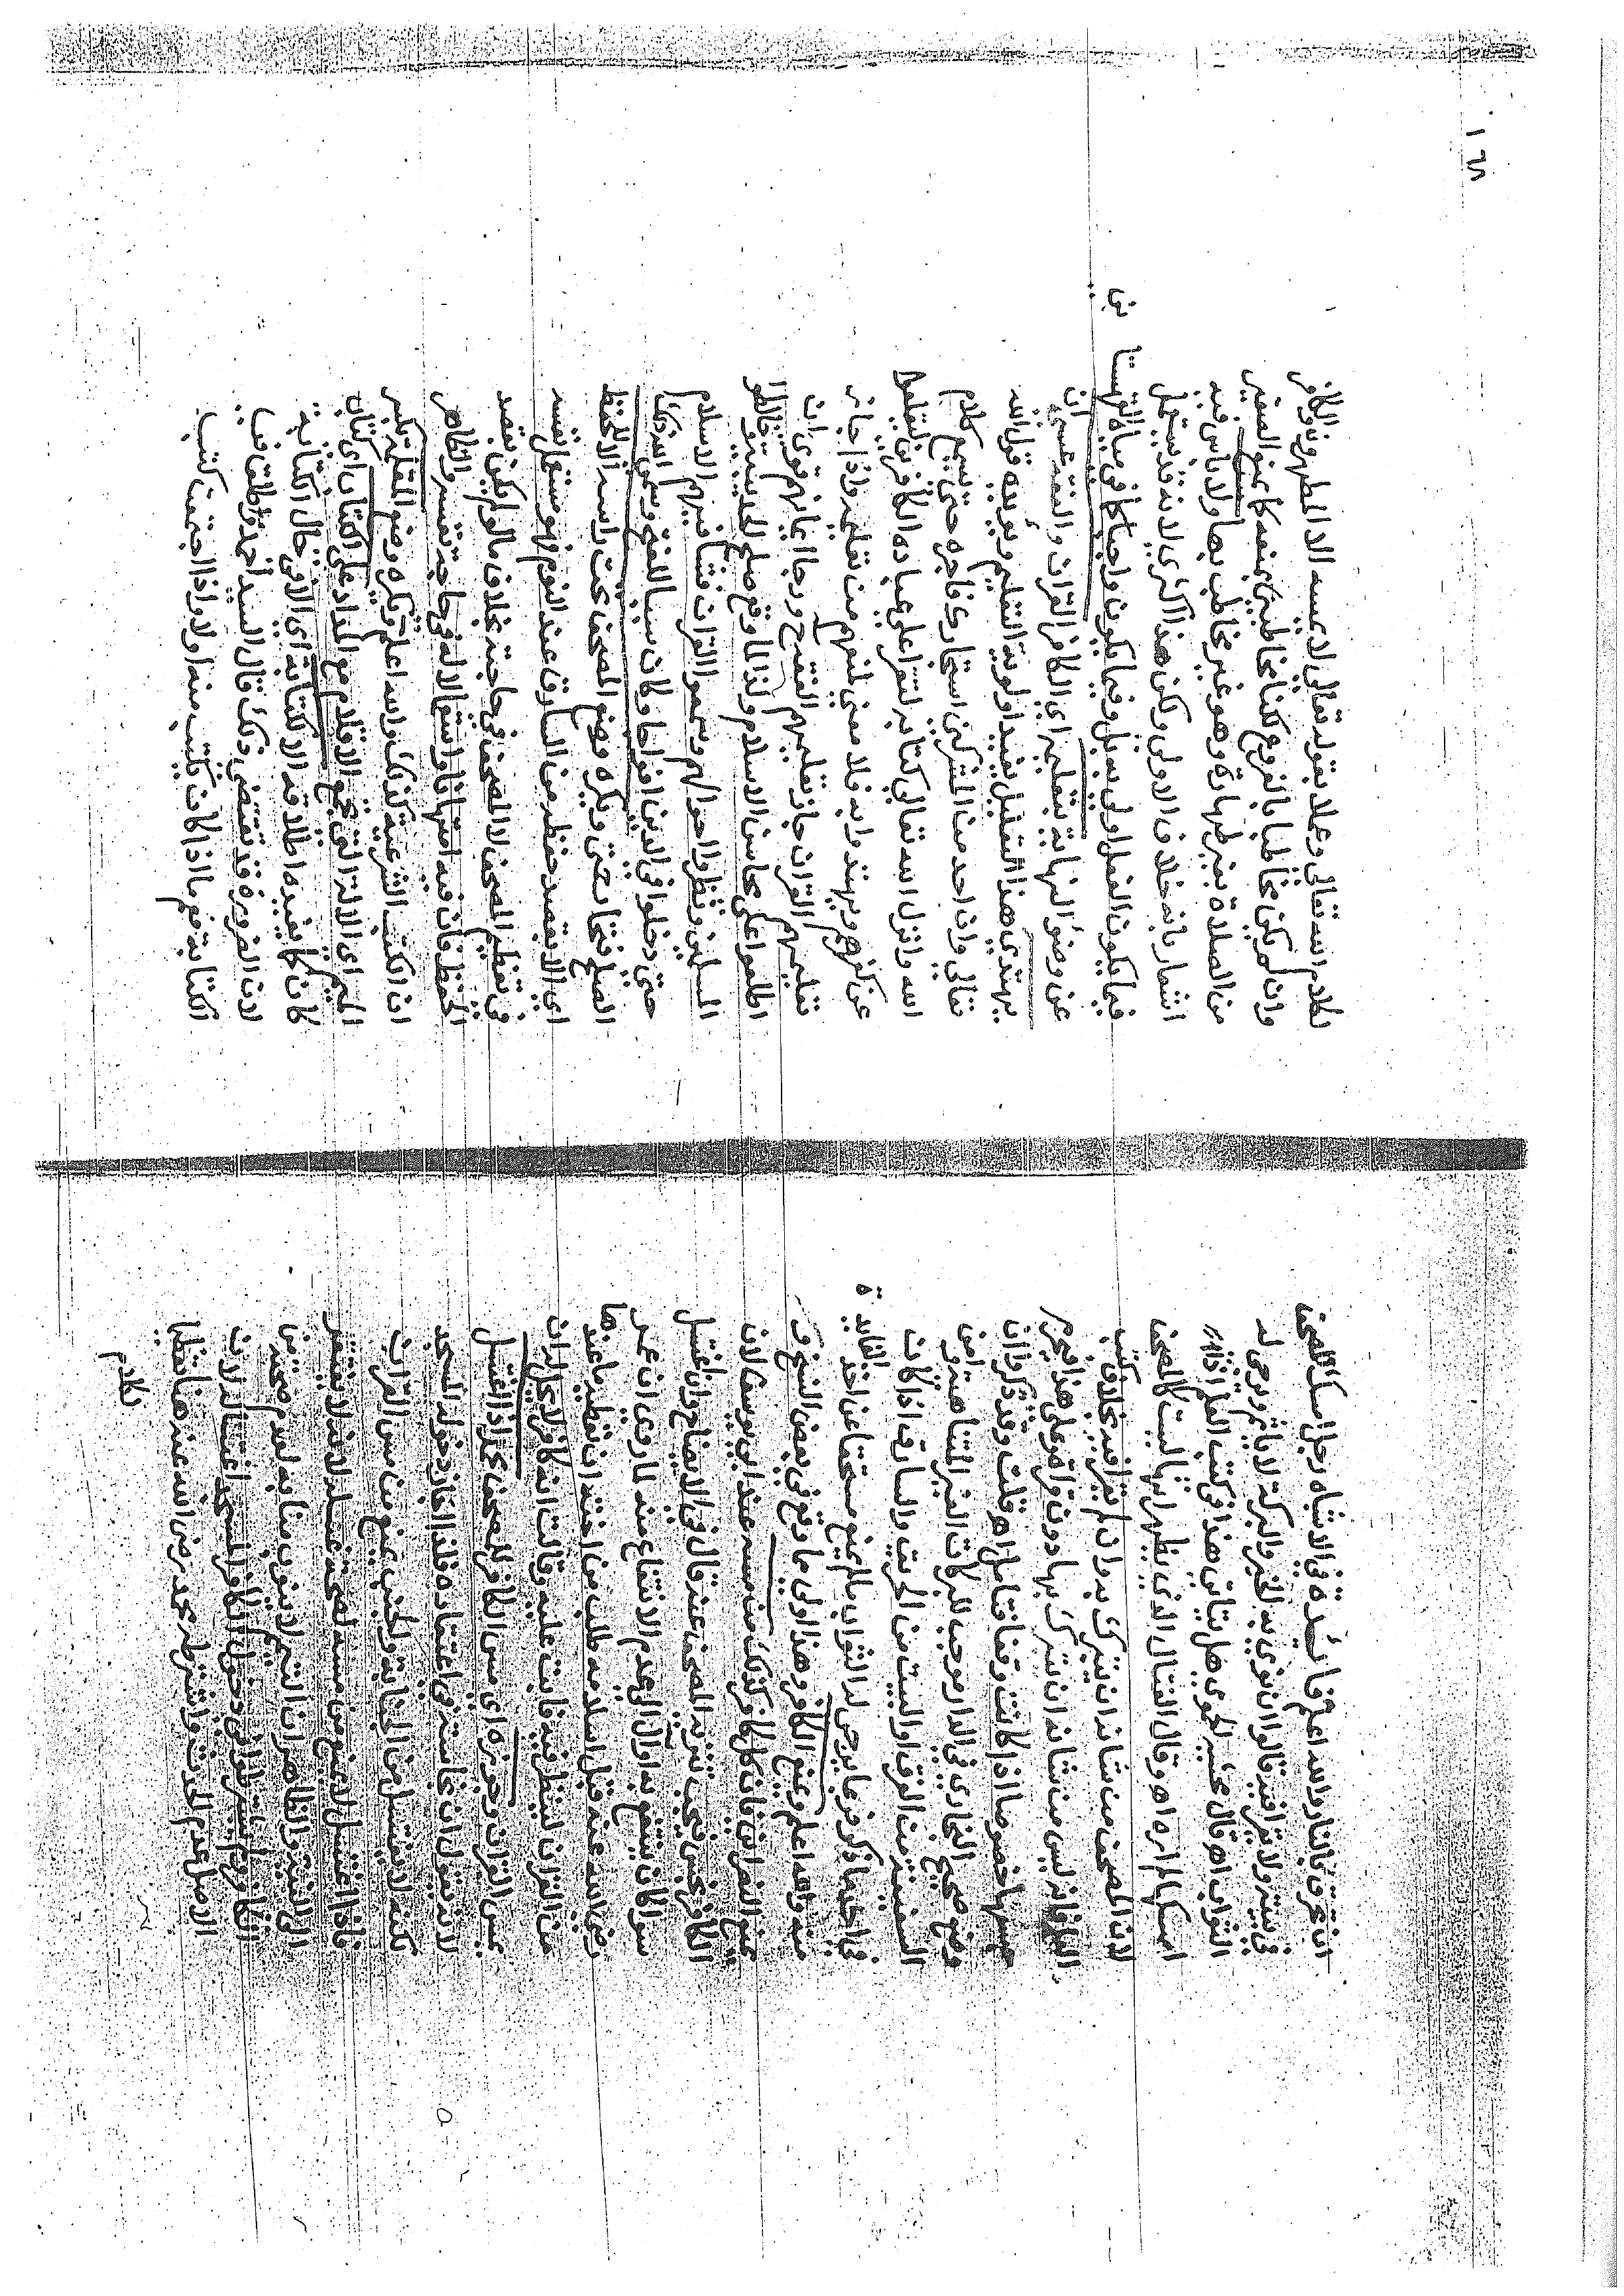 ان تحرق بالنار والله اعلم فائدة في الاشباه رجل امسك المصحف
في بيته ولا يقرا فيه قالوا ان نوي به الخير والبركة لا ياثم ويرجى له
الثواب اه قال محشيه الحموي هل يتاتي هذا في كتب العلم اذا
امسكها لم اره اه وقال الفتال الذي يظهر انها ليست كالمصحف
لان المصحف من شانه ان يتبرك به وان لم يقرا فيه بخلاف كتب
العلم فانه ليس من شانه ان يتبرك بها دون قراة وعلى هذا فيحرم
حبسها خصوصا اذا كانت وقفا فتامل اه قلت وقد ذكروا ان
وضع صحيح البخاري في الدار موجب للبركات الغير المتناهية وامن
السفينة من الغرق والبيت من الحريق والسارق اذا كانت
في احدهما ذكر يرجى له الثواب ما لم يمنع مستحقا عن اخذ الفايدة
منه والله اعلم ويمنع الكافر وهذا اولي مما وقع في بعض النسخ و
يمنع النصراني فان كل كافر كذلك من مسه عند ابي يوسف لان
الكافر نجس فيجب تنزيه المصحف عنه قال في الايضاح وان اغتسل
سوا كان ينتفع به او آل الي عدم الانتفاع منه لما روى ان عمر
رضي الله عنه قبل اسلامه طلب من اخته ان تعطيه ما عندها
من القران لينظر فيه فابت عليه وقالت انه كافر لا يحل له ان
يمس القران وجوزه اي مس الكافر المصحف محمد اذا اغتسل
لانه يقول ان نجاسته في اعتقاده فلذا اجاز دخوله المسجد
لكنه لا يغتسل من الجنابة والجنب يمنع من مس القران
فاذا اغتسل لا يمنع من مسه لصحة غسله لانه لا يفتقر
الى النية والظاهر ان التيمم لا ينوب منابه لعدم صحته من
الكافر ولم يشترطوا في دخول الكافر المسجد اغتساله لان
الاصل عدم الحدث واشترطه محمد رضي الله عنه هنا تعظيما
لكلام
١٦
لكلام الله تعالي وعملا بقوله تعالي لا يمسه الا المطهرون والكافر
وان لم يكن مخاطبا بالفروع لكنا مخاطبين بمنعه كما يمنع الصغير
من الصلاة بغير طهارة وهو غير مخاطب بها ولا باس فيه
اشعار بانه خلاف الاولى ولكن هذا اكثري لانه قد يستعمل
فيما يكون الفعل اولي به بل وفيما يكون واجبا كما في مياه القهستاني
عن وضوء النهاية بتعليمه اي الكافر القران والفقه عسى ان
يهتدي هذا التعليل يفيد اولوية التعليم ويؤيده قول الله
تعالي وان احد من المشركين استجارك فاجره حتى يسمع كلام
الله وانزل الله تعالي كتابه لتقرا على عباده الكافرين ليقلعوا
عن كفرهم ويهتدوا به فلا معني لمنعهم من تعليمه واذا جاز
تعليمهم القران جاز تعليمهم الفقه ورجا ايمانهم قوي ان
اطلعوا على محاسن الاسلام ولذا لما وقع صلح الحديبية وخالطوا
المسلمين ونظروا احوالهم وسمعوا القران فشا فيهم الاسلام
حتى دخلوا في الدين افواجا وكان سببا للفتح وسمى الله ذلك
الصلح فتحا يعني ويكره وضع المصحف تحت راسه الا للحفظ
اي الا بقصد حفظ من السارق عند النوم فهو مستعمل لنفسه
في تعظيم المصحف لا المصحف في حاجته بخلاف ما لو لم يكن بقصد
الحفظ فان فيه امتهانا واستعمالا له في حاجة نفسه والظاهر
ان الكتب الشرعية كذلك والله اعلم ويكره وضع المقلمة بكسر
الميم اي الالة التي تجمع الاقلام مع المداد على الكتاب اي كتاب
كان كما يفيده اطلاقه الا لكتابة اي الا في حال الكتابة
لان الضرورة قد تقتضي ذلك قال السيد احمد واطلق في
الكتابة فعم ما اذا كان يكتب منه اولا واذا اجتمعت كتب